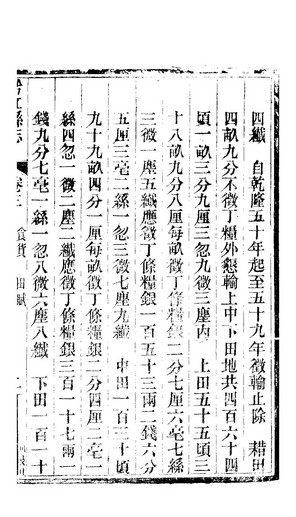 四纖　自乾隆五十年起至五十九年徵輸止除　耤田
四畝九分不徵丁糧外懇輸上中下田地共四百六十四
頃一畝三分九厘三忽九微三塵內　上田五十五頃三
十八畝九分八厘每畝徵丁條糧銀二分七厘六毫七絲
三微一塵五纖應徵丁條糧銀一百五十三兩二錢六分
五厘三毫二絲一忽三微七塵九纖　中田一百三十頃
九十九畝四分一厘每畝徵丁條糧銀二分四厘二毫一
絲四忽一微二塵二纖應徵丁條糧銀三百一十七兩一
錢九分七毫一絲一忽八微六塵八纖　下田一百一十
縣志　卷三　食貨　田賦　二